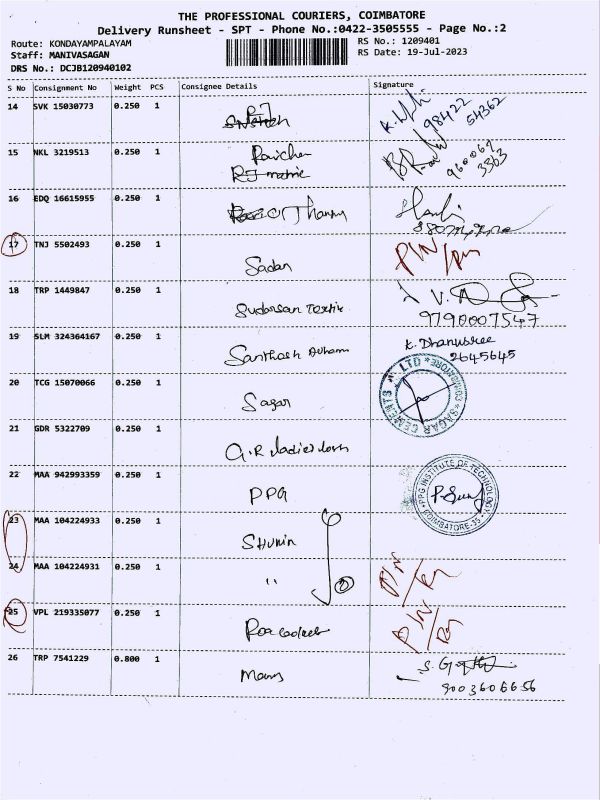 THE PROFESSIONAL COURIERS, COIMBATORE
Delivery Runsheet - SPT - Phone No.:0422-3505555 - Page No.:2
Route: KONDAYAMPALAYAM
RS No.: 1209401
Staff: MANIVASAGAN
RS Date: 19-Jul-2023
DRS No.: DCJB120940102
S No Consignment No Weight PCS Consignee Details Signature
14 SVK 15030773 0.250 1
98422
54362
15 NKL 3219513 0.250 1
RJ matric
16 EDQ 16615955 0.250 1
17 TNJ 5502493 0.250 1 Sadan
18 TRP 1449847 0.250 1 Sudarsan
9790007547
19 SLM 324364167 0.250 1 Santhosh K. Dhanushree
2645645
20 TCG 15070066 0.250 1 Sagar SAGAR CEMENTS LTD COIMBATORE
21 GDR 5322709 0.250 1 G.R
22 MAA 942993359 0.250 1 PPG PPG INSTITUTE OF TECHNOLOGY COIMBATORE-35
23 MAA 104224933 0.250 1
24 MAA 104224931 0.250 1 "
25 VPL 219335077 0.250 1
26 TRP 7541229 0.800 1
9003606656